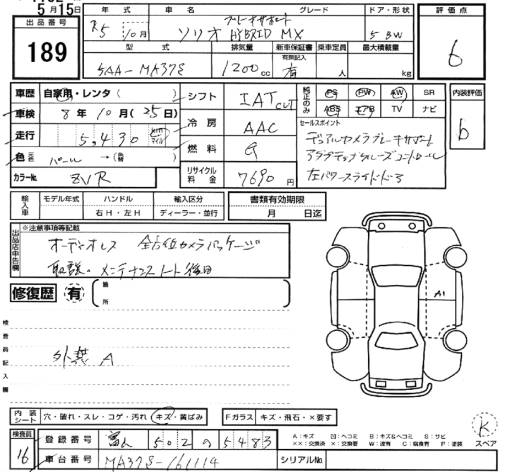 5月15日
出品番号 189
年式 R5 10月
車名 ソリオ HYBRID MX
グレード
ドア・形状 5 BW
型式 5AA-MA37S
排気量 1200cc
新車保証書 有無記入 有
乗車定員 人
最大積載量 kg
評価点 6
車歴 自家用・レンタ( )
車検 8年10月(25日)
走行 5,430
色
カラーNo. ZVR
シフト IAT CVT
冷房 AAC
燃料 G
リサイクル料金 7690円
純正のみ PS PW AW SR
ABS エアB TV ナビ
セールスポイント
デュアルカメラブレーキサポート
アダプティブクルーズコントロール
左パワースライドドア
内装評価 b
輸入車 モデル年式 ハンドル 輸入区分
年 右H・左H ディーラー・並行
書類有効期限
月 日迄
出品店申告欄
※注意事項等記載
オーディオレス 全方位カメラパッケージ
取説。メンテナンスノート後日
修復歴 有
箇所
検査員記入欄
外装 A
A1
内装シート 穴・破れ・スレ・コゲ・汚れ(キズ・黄ばみ
Fガラス キズ・飛石・×要す
検査員 16
登録番号 502 の 5483
車台番号 MA37S-161114
シリアルNo.
A:キズ B:キズ&ヘコミ S:サビ
××:交換済 ×:交換要 W:波有 C:腐食有 P:塗装
K
スペア